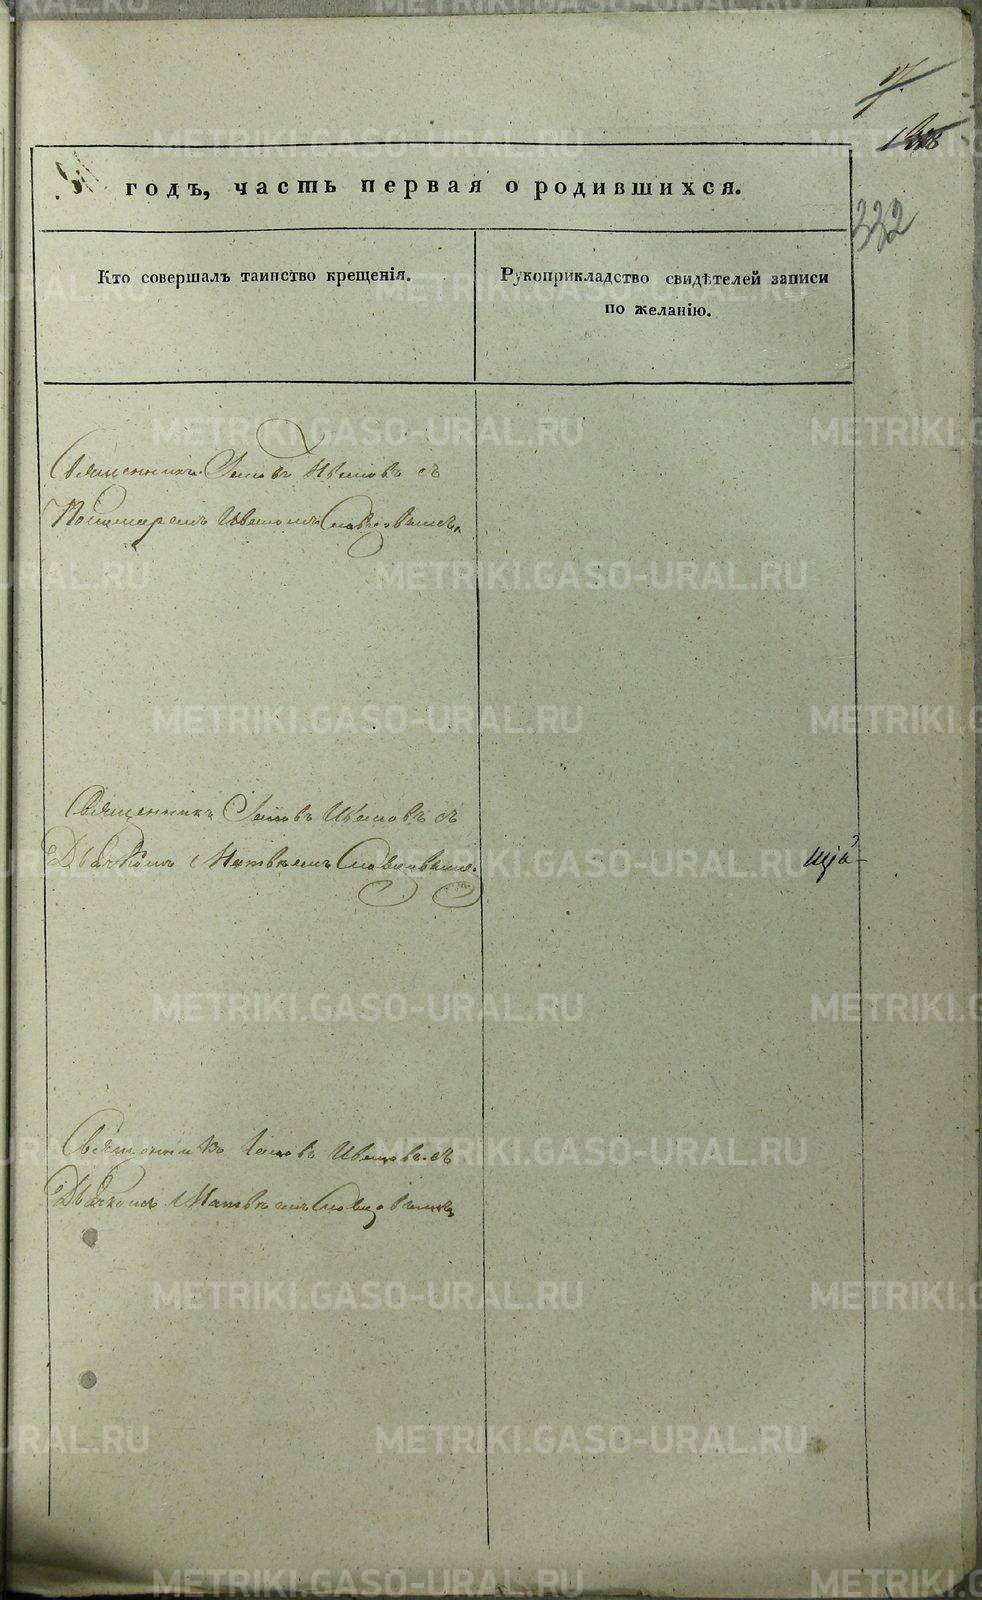 17.
332
годъ, часть первая о родившихся.
Кто совершалъ таинство крещенія.
Рукоприкладство свидѣтелей записи
по желанію.
Священникъ Іаковъ Ивановъ съ
Пономаремъ Иваномъ
Священникъ Іаковъ Ивановъ съ
Дьячкомъ Матвѣемъ
Священникъ Іаковъ Ивановъ съ
Дьячкомъ Матвѣемъ
METRIKI.GASO-URAL.RU